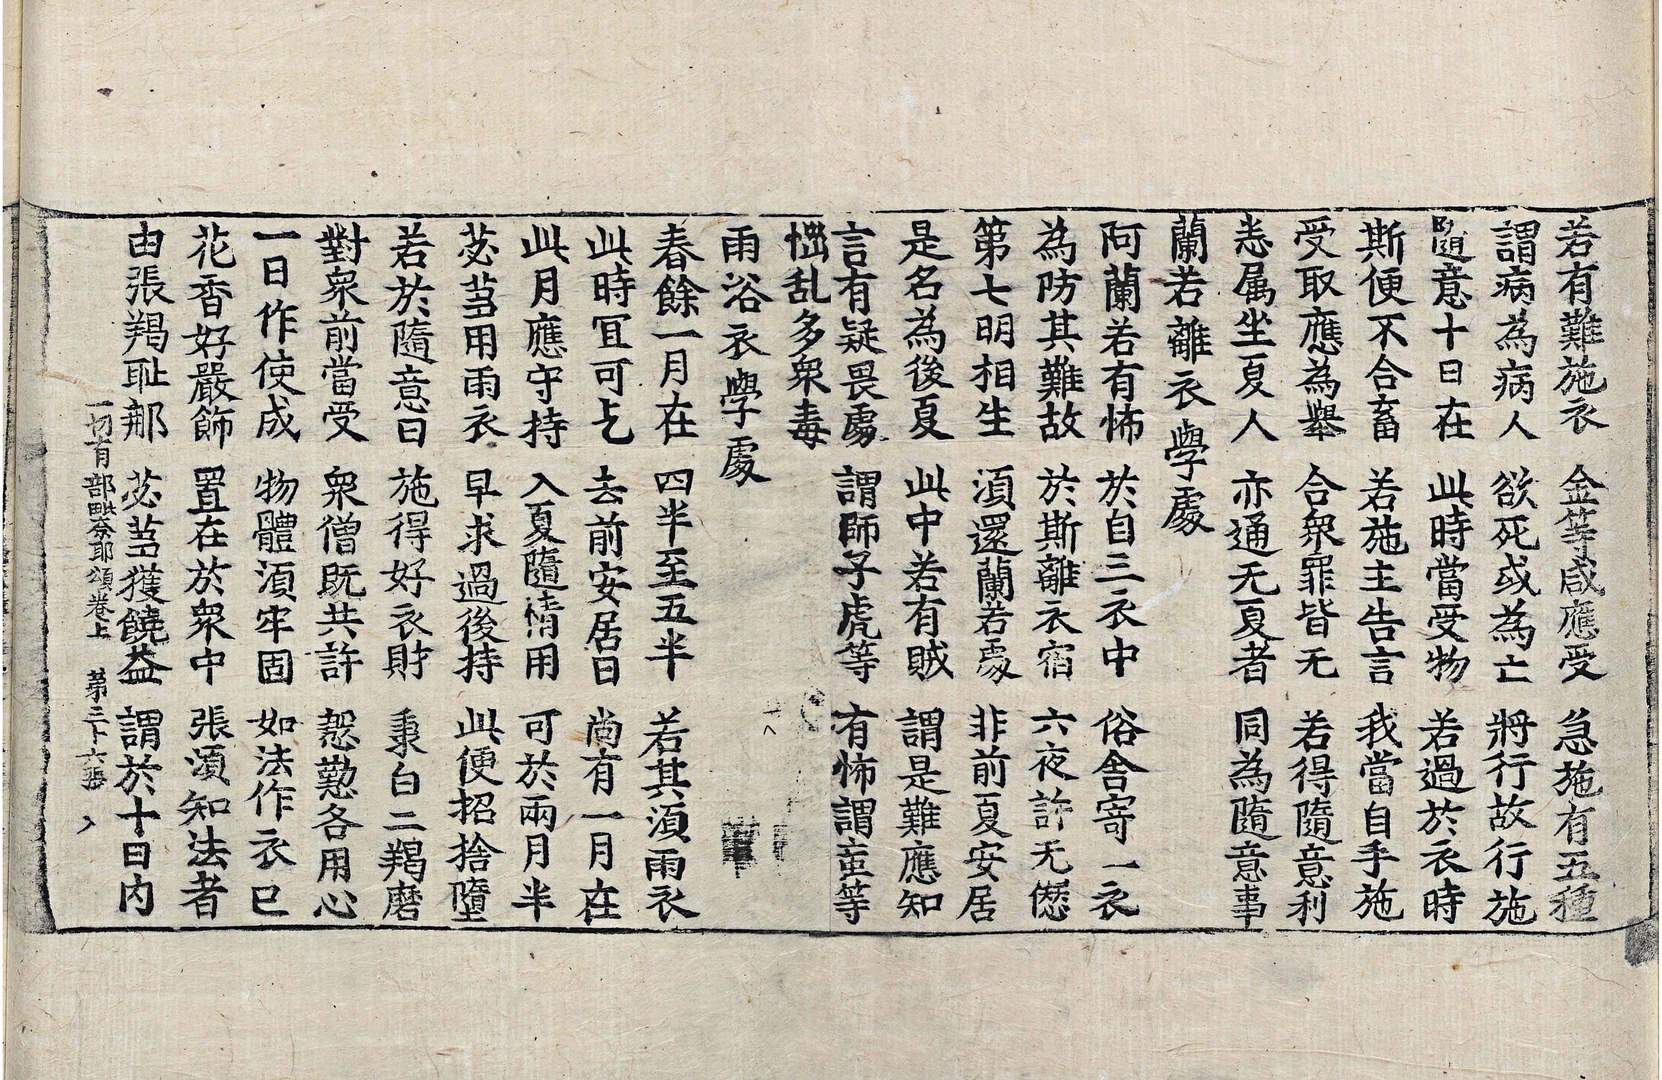 若有難施衣　金等咸應受　急施有五種
謂病為病人　欲死或為亡　將行故行施
隨意十日在　此時當受物　若過於衣時
斯便不合畜　若施主告言　我當自手施
受取應為舉　合衆罪皆无　若得隨意利
恙属坐夏人　亦通无夏者　同為隨意事
蘭若離衣學處
阿蘭若有怖　於自三衣中　俗舍寄一衣
為防其難故　於斯離衣宿　六夜許无愆
第七明相生　湏還蘭若處　非前夏安居
是名為後夏　此中若有賊　謂是難應知
言有疑畏處　謂師子虎等　有怖謂蚉等
惱乱多衆毒
雨浴衣學處
春餘一月在　四半至五半　若其湏雨衣
此時冝可乞　去前安居日　尚有一月在
此月應守持　入夏隨情用　可於兩月半
苾芻用雨衣　早求過後持　此便招捨墮
若於隨意日　施得好衣財　秉白二羯磨
對衆前當受　衆僧既共許　慇懃各用心
一日作使成　物體湏牢固　如法作衣已
花香好嚴飾　置在於衆中　張湏知法者
由張羯耻那　苾芻獲饒益　謂於十日內
一切有部毗奈耶頌卷上　第三十六張　入